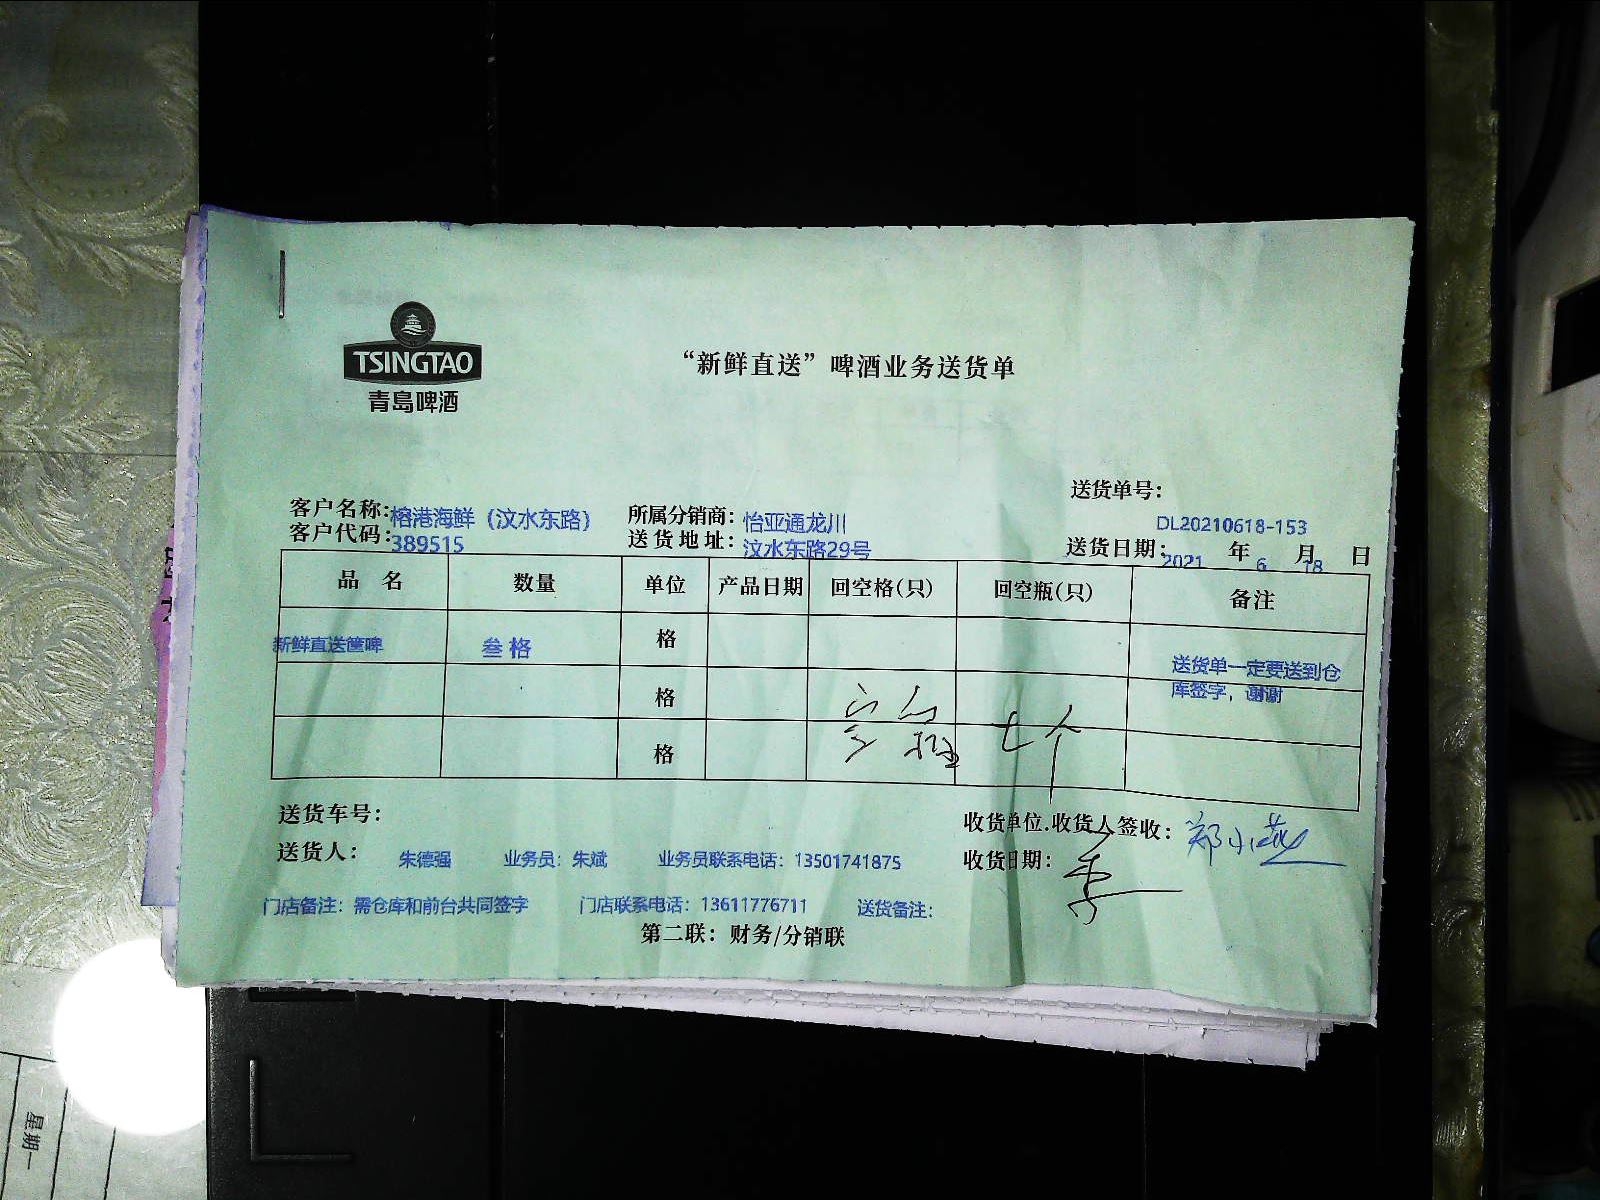 TSINGTAO
青岛啤酒
“新鲜直送”啤酒业务送货单
送货单号：
DL20210618-153
客户名称：榕港海鲜（汶水东路） 所属分销商：怡亚通龙川
客户代码：389515 送货地址：汶水东路29号 送货日期：2021 年 6 月 18 日
品 名 数量 单位 产品日期 回空格（只） 回空瓶（只） 备注
新鲜直送筐啤 叁格 格 送货单一定要送到仓
库签字，谢谢
格
格
空格 七个
送货车号：
收货单位.收货人签收：郑小燕
送货人： 朱德强 业务员：朱斌 业务员联系电话：13501741875 收货日期：
门店备注：需仓库和前台共同签字 门店联系电话：13611776711 送货备注：
第二联：财务/分销联
星期一